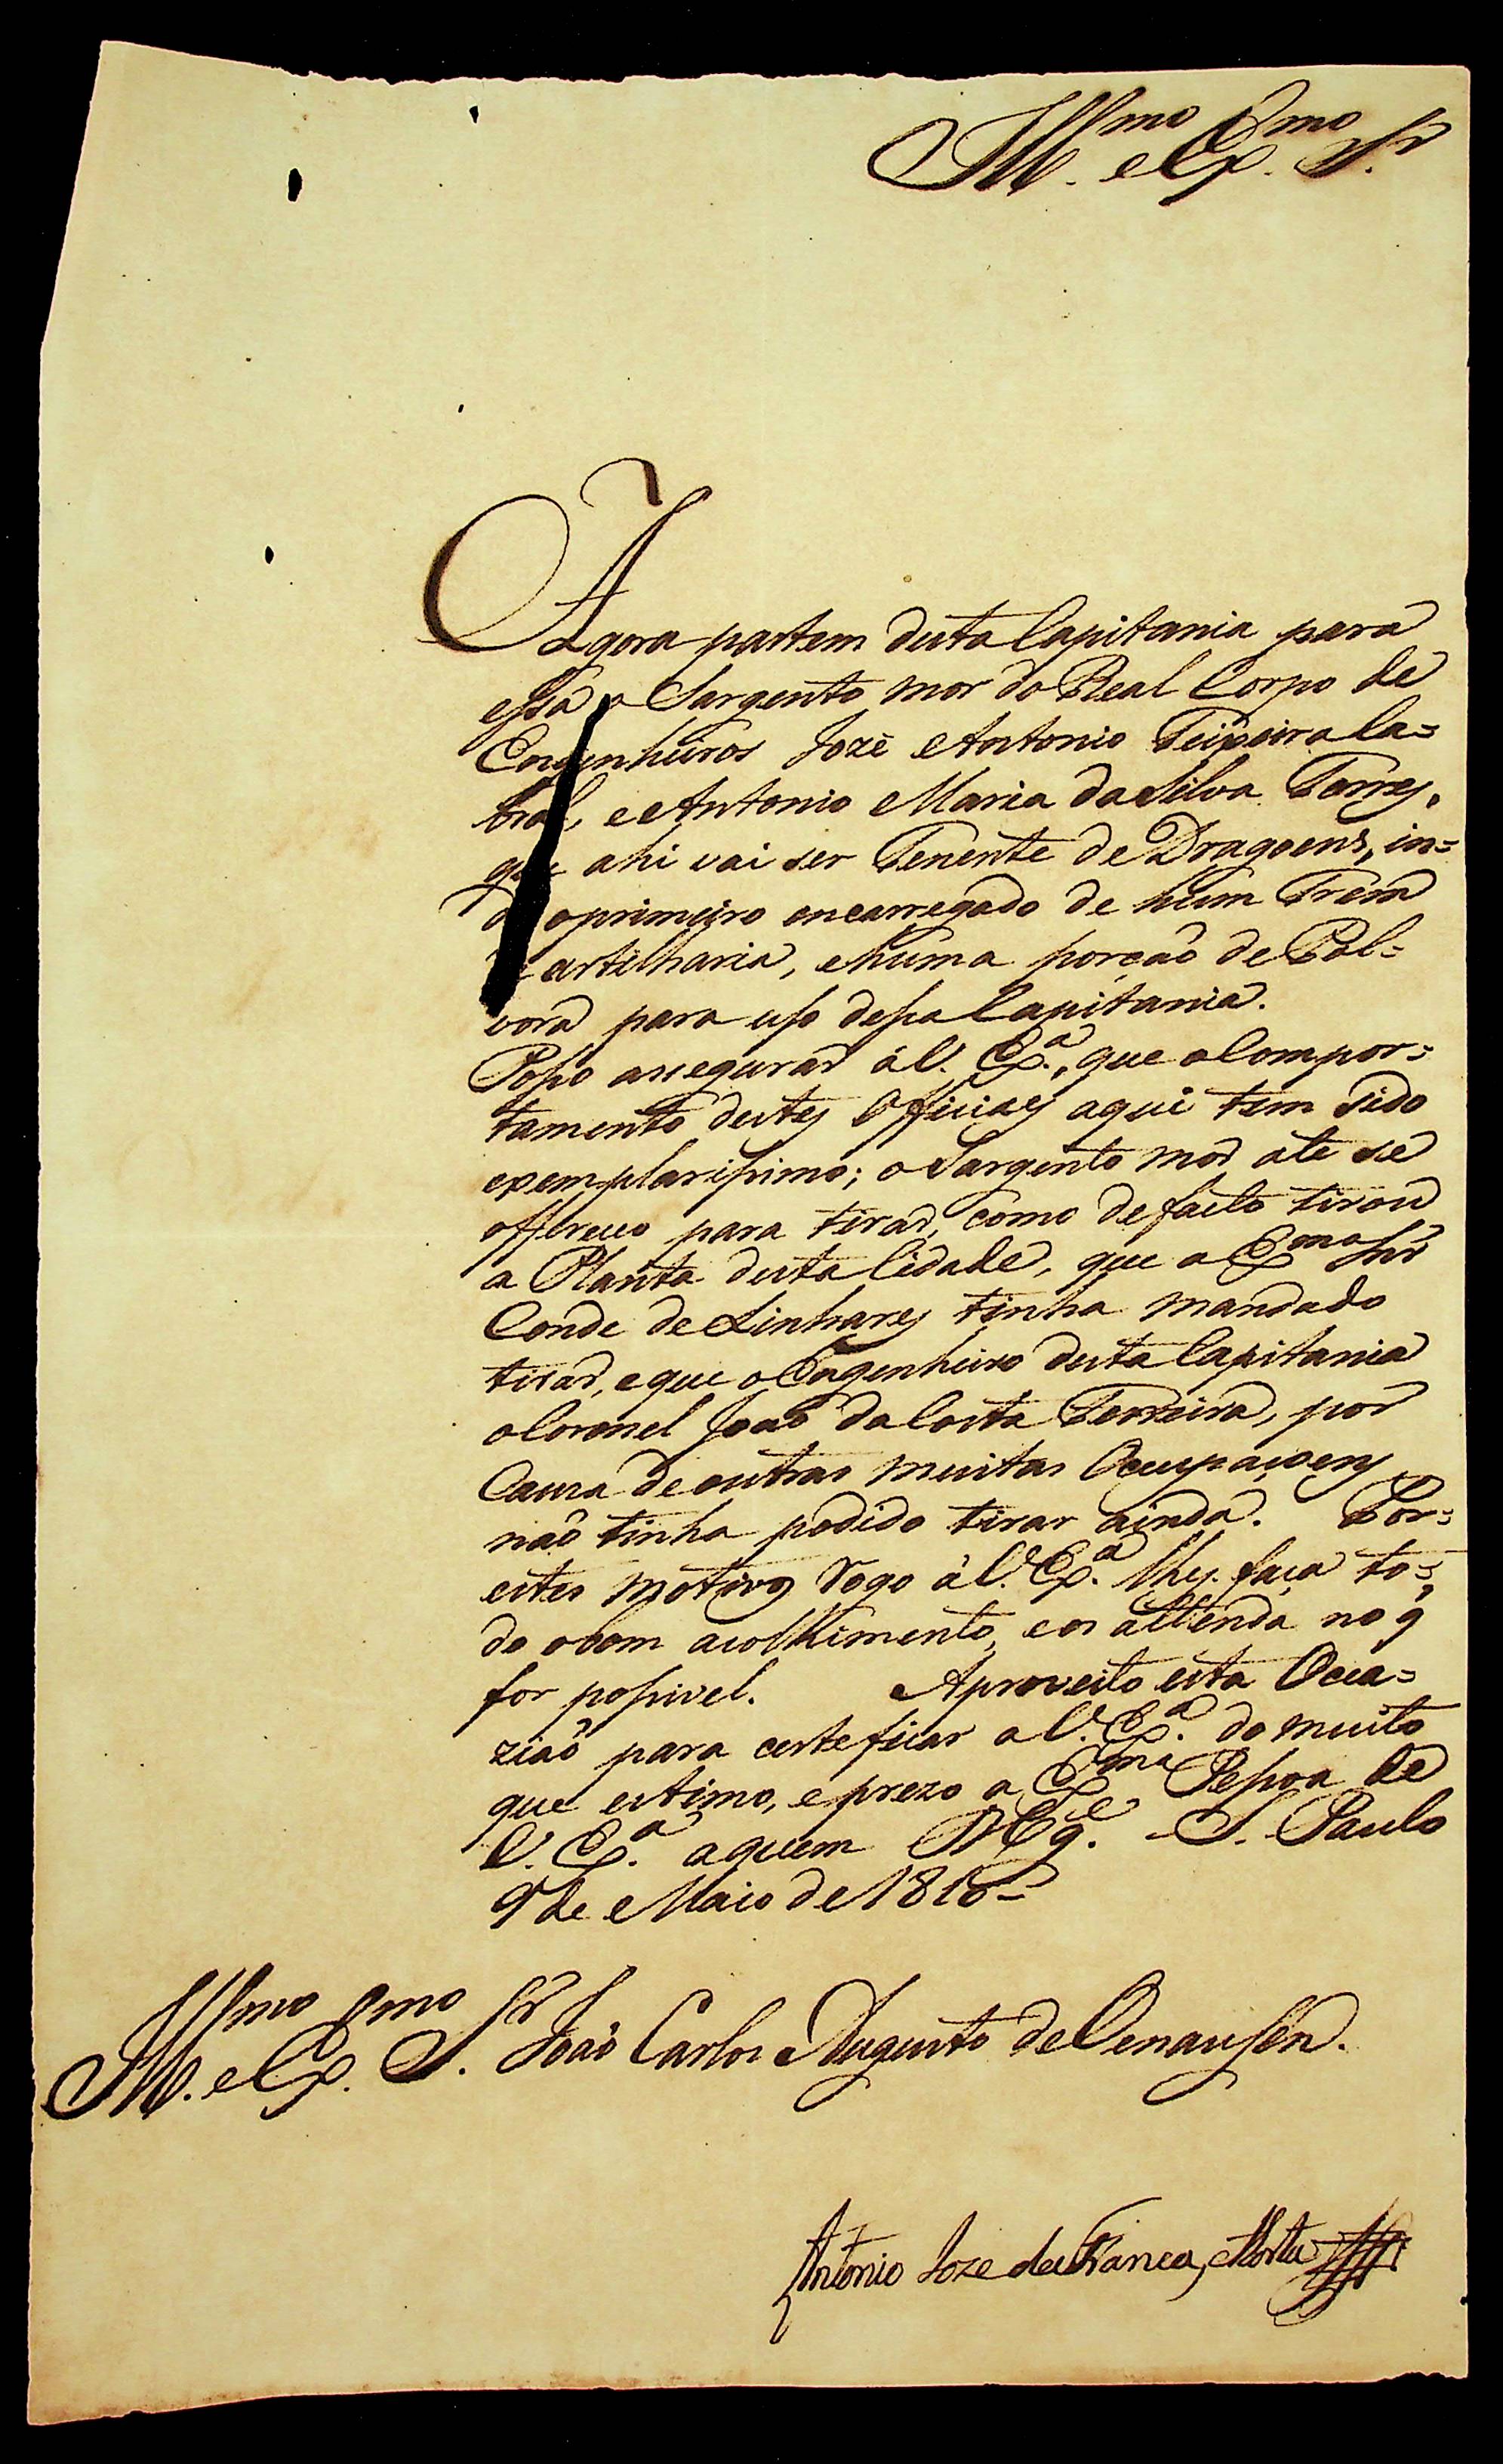 Ill.mo e Ex.mo Sr.
Agora partem desta Capitania para
essa o Sargento mor do Real Corpo de
Engenheiros Jozé Antonio Teixeira Ca=
bral, e Antonio Maria da Silva Torres,
que ahi vai ser Tenente de Dragoens, in=
do o primeiro encarregado de hum Trem
de artilharia, e huma porção de Pol=
vora para uso dessa Capitania.
Posso assegurar á V. Ex.a, que o Compor=
tamento destes Officiaes aqui tem sido
exemplarissimo; o Sargento mor até se
offereceo para tirar, como de facto tirou
a Planta desta Cidade, que o Ex.mo Snr
Conde de Linhares tinha mandado
tirar, e que o Engenheiro desta Capitania
o Coronel João da Costa Ferreira, por
Causa de outras muitas Occupaçoens
não tinha podido tirar ainda. Por=
estes motivos rogo á V. Ex.a lhes faça to=
do o bom acolhimento, e os attenda no q
for possivel. Aproveito esta Occa=
zião para certeficar a V. Ex.a do muito
que estimo, e prezo a Ex.ma Pessoa de
V. Ex.a a quem D.s G.e S. Paulo
9 de Maio de 1818
Ill.mo e Ex.mo Sr. João Carlos Augusto de Oenausen.
Antonio Joze da Franca, e Horta